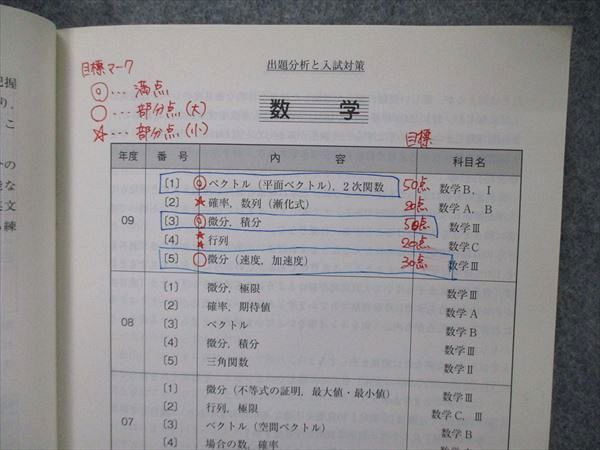 出題分析と入試対策
目標マーク
◎… 満点
○… 部分点(大)
☆… 部分点(小)
数 学
目標
年度 番 号 内 容 科目名
09
〔1〕 ◎ ベクトル(平面ベクトル),2次関数 50点 数学B,Ⅰ
〔2〕 ☆ 確率,数列(漸化式) 20点 数学A,B
〔3〕 ◎ 微分,積分 50点 数学Ⅲ
〔4〕 ☆ 行列 20点 数学C
〔5〕 ○ 微分(速度,加速度) 30点 数学Ⅲ
08
〔1〕 微分,極限 数学Ⅲ
〔2〕 確率,期待値 数学A
〔3〕 ベクトル 数学B
〔4〕 微分,積分 数学Ⅲ
〔5〕 三角関数 数学Ⅱ
07
〔1〕 微分(不等式の証明,最大値・最小値) 数学Ⅲ
〔2〕 行列,極限 数学C,Ⅲ
〔3〕 ベクトル(空間ベクトル) 数学B
〔4〕 場合の数,確率